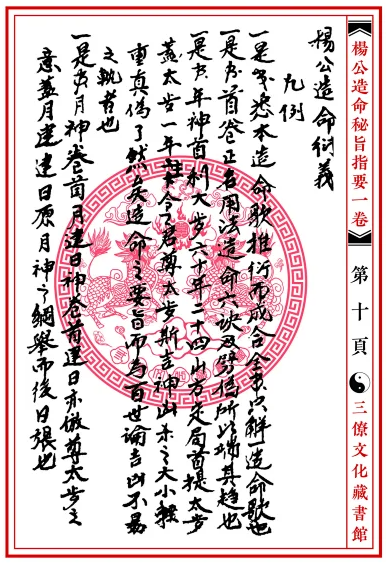 楊公造命秘旨指要一卷
第十頁
三僚文化藏書館
楊公造命衍義
凡例
一是书悉本造命歌推衍而成合全書只解造命歌也
一是书首卷正名用法造命六訣及劈偽所以端其趨也
一是书年神首列太岁六十年二十四山方定局首提太岁
蓋太岁一年之君尊太岁斯吉神凶杀之大小轻
重真偽了然矣造命之要旨即為百世論吉凶不易
之執者也
一是书月神卷首月建日神卷首建日亦倣尊太岁之
意蓋月建建日原月神之綱舉而後目張也